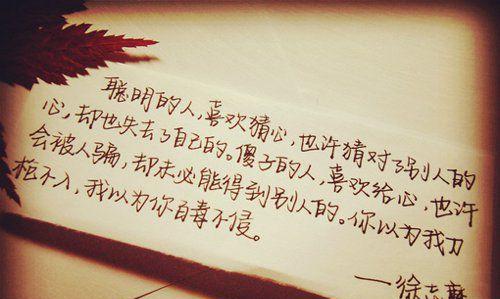 聪明的人，喜欢猜心，也许猜对了别人的
心，却也失去了自己的。傻子的人，喜欢给心，也许
会被人骗，却未必能得到别人的。你以为我刀
枪不入，我以为你百毒不侵。
——徐志摩